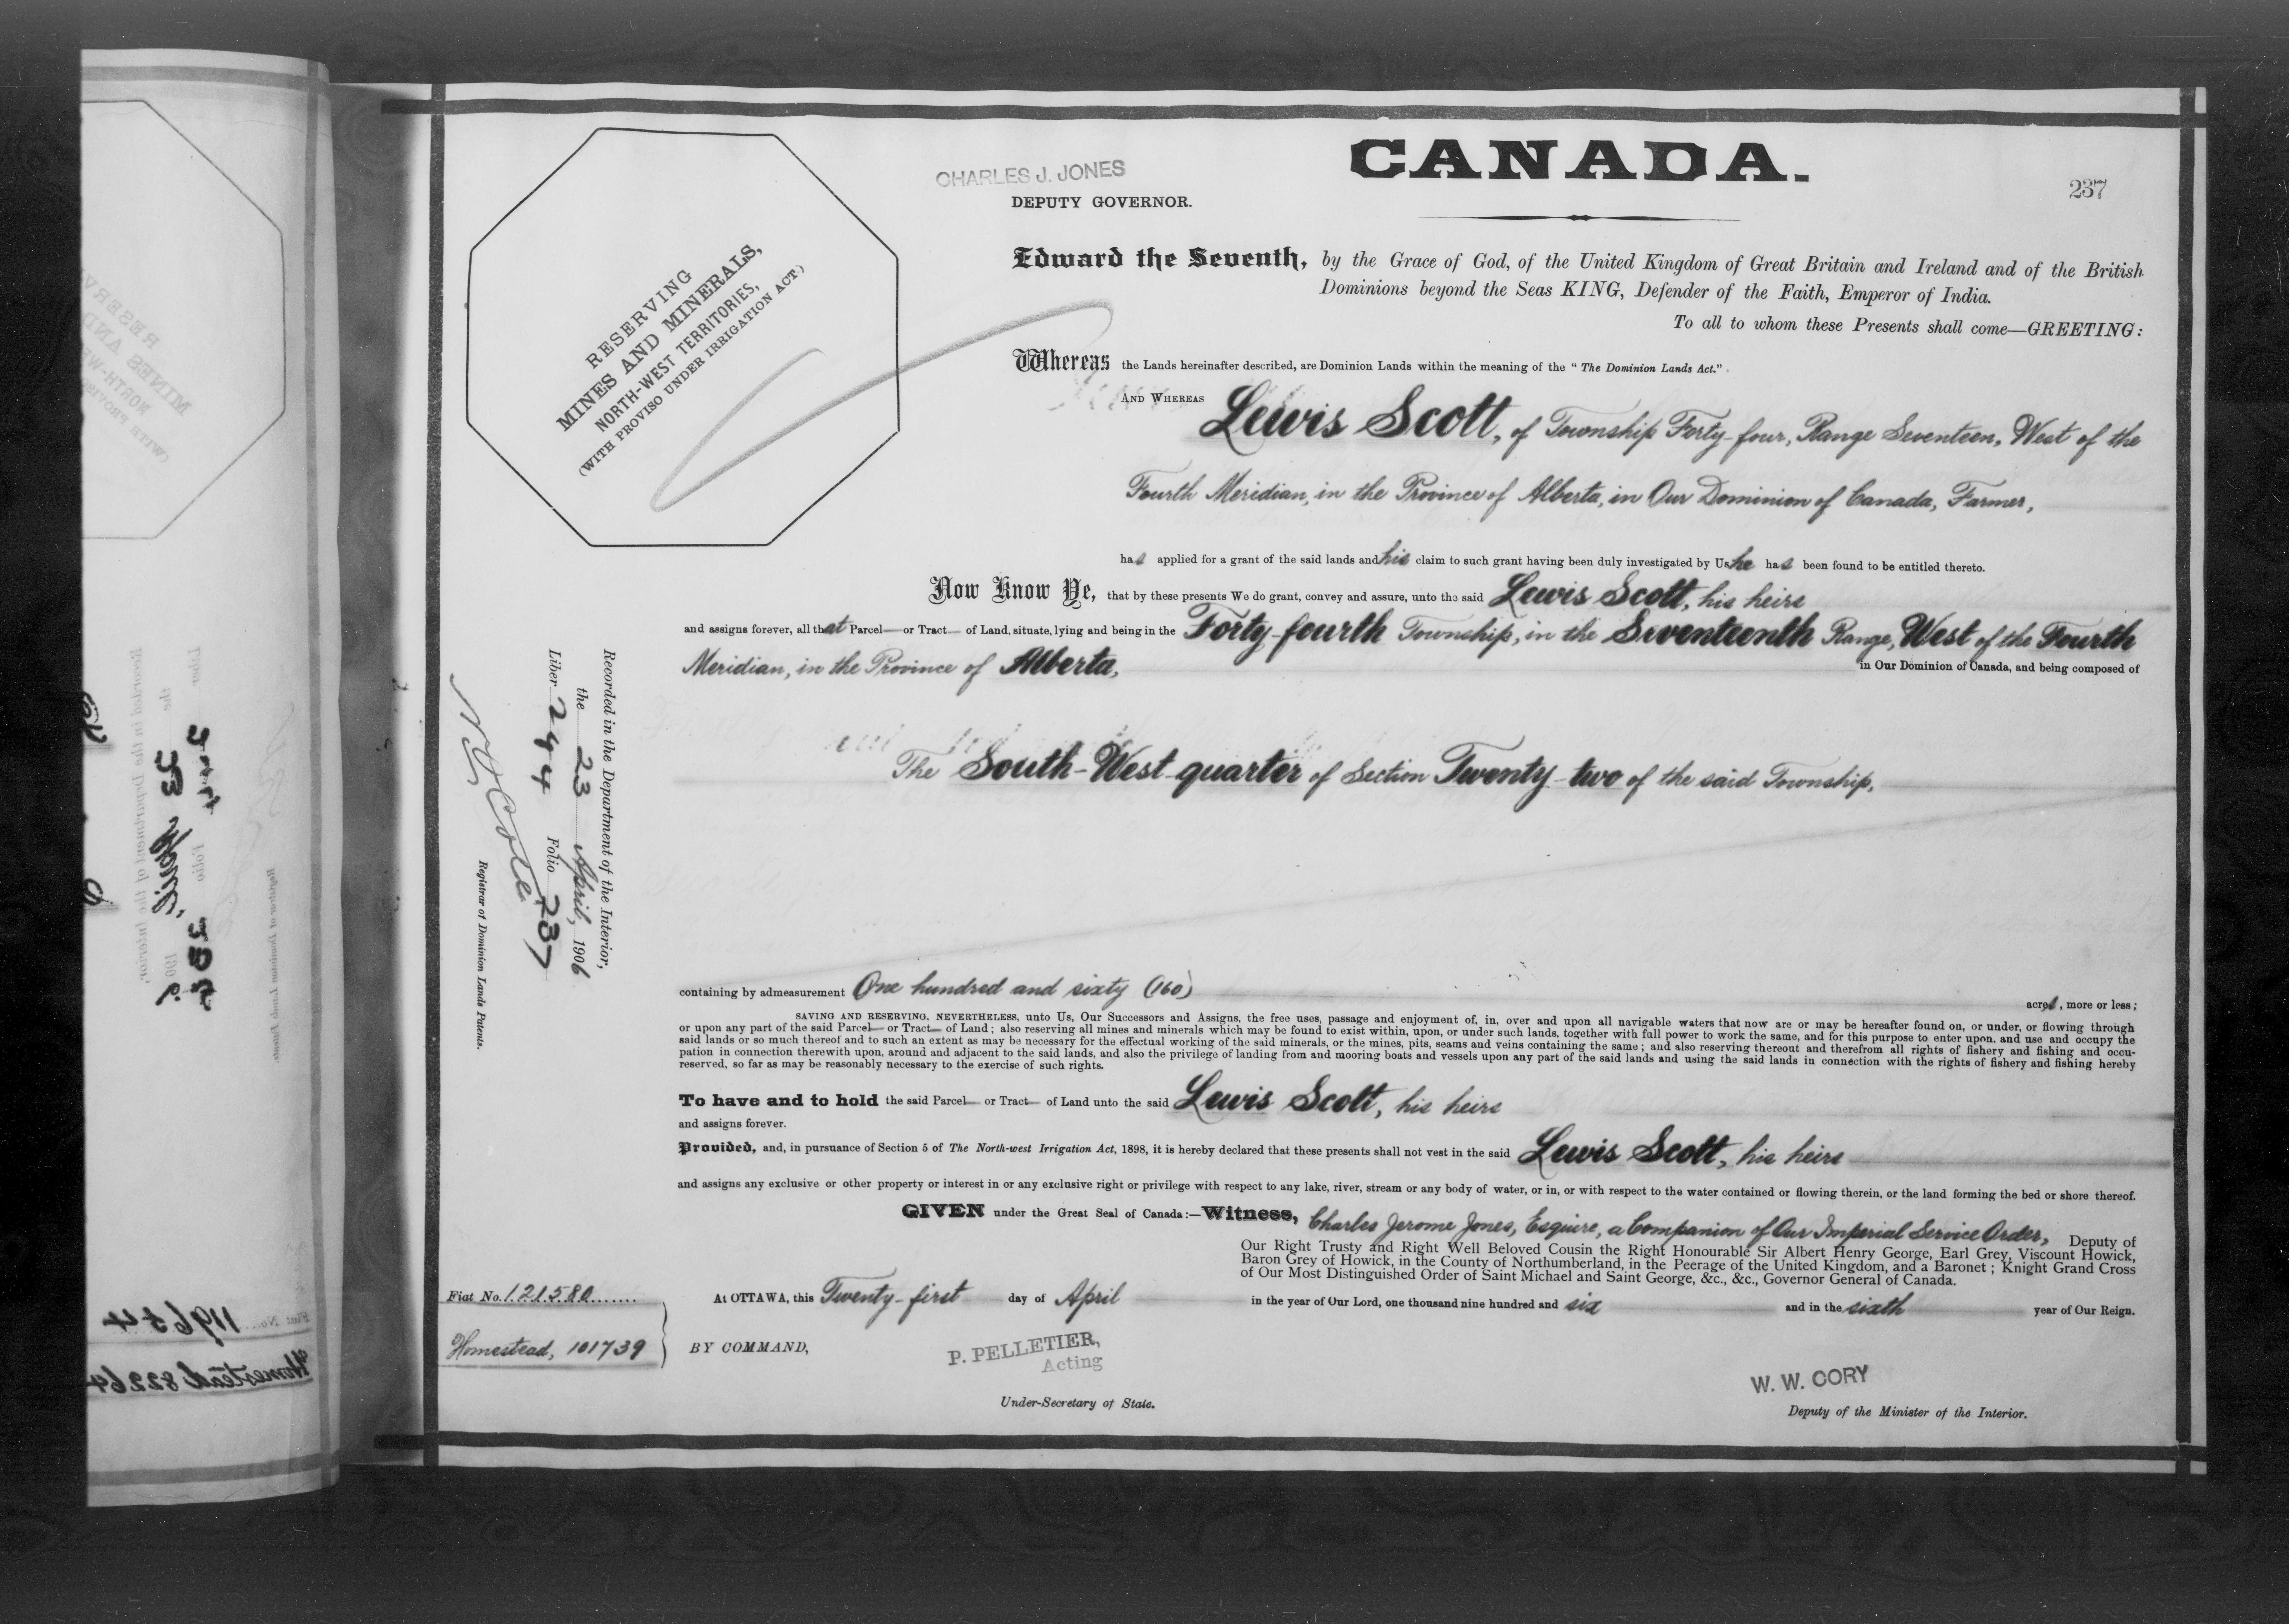 CANADA.
CHARLES J. JONES
DEPUTY GOVERNOR.
237
RESERVING
MINES AND MINERALS,
NORTH-WEST TERRITORIES,
(WITH PROVISO UNDER IRRIGATION ACT.)
Edward the Seventh, by the Grace of God, of the United Kingdom of Great Britain and Ireland and of the British
Dominions beyond the Seas KING, Defender of the Faith, Emperor of India.
To all to whom these Presents shall come—GREETING:
Whereas the Lands hereinafter described, are Dominion Lands within the meaning of the "The Dominion Lands Act."
AND WHEREAS Lewis Scott, of Township Forty-four, Range Seventeen, West of the
Fourth Meridian, in the Province of Alberta, in Our Dominion of Canada, Farmer,
has applied for a grant of the said lands and his claim to such grant having been duly investigated by Us he has been found to be entitled thereto.
Now Know Ye, that by these presents We do grant, convey and assure, unto the said Lewis Scott, his heirs
and assigns forever, all that Parcel— or Tract— of Land, situate, lying and being in the Forty-fourth Township, in the Seventeenth Range, West of the Fourth
Meridian, in the Province of Alberta, in Our Dominion of Canada, and being composed of
The South-West quarter of Section Twenty-two of the said Township,
containing by admeasurement One hundred and sixty (160) acres, more or less;
SAVING AND RESERVING, NEVERTHELESS, unto Us, Our Successors and Assigns, the free uses, passage and enjoyment of, in, over and upon all navigable waters that now are or may be hereafter found on, or under, or flowing through
or upon any part of the said Parcel— or Tract— of Land; also reserving all mines and minerals which may be found to exist within, upon, or under such lands, together with full power to work the same, and for this purpose to enter upon, and use and occupy the
said lands or so much thereof and to such an extent as may be necessary for the effectual working of the said minerals, or the mines, pits, seams and veins containing the same; and also reserving thereout and therefrom all rights of fishery and fishing and occu-
pation in connection therewith upon, around and adjacent to the said lands, and also the privilege of landing from and mooring boats and vessels upon any part of the said lands and using the said lands in connection with the rights of fishery and fishing hereby
reserved, so far as may be reasonably necessary to the exercise of such rights.
To have and to hold the said Parcel— or Tract— of Land unto the said Lewis Scott, his heirs
and assigns forever.
Provided, and, in pursuance of Section 5 of The North-west Irrigation Act, 1898, it is hereby declared that these presents shall not vest in the said Lewis Scott, his heirs
and assigns any exclusive or other property or interest in or any exclusive right or privilege with respect to any lake, river, stream or any body of water, or in, or with respect to the water contained or flowing therein, or the land forming the bed or shore thereof.
GIVEN under the Great Seal of Canada:—Witness, Charles Jerome Jones, Esquire, a Companion of Our Imperial Service Order, Deputy of
Our Right Trusty and Right Well Beloved Cousin the Right Honourable Sir Albert Henry George, Earl Grey, Viscount Howick,
Baron Grey of Howick, in the County of Northumberland, in the Peerage of the United Kingdom, and a Baronet; Knight Grand Cross
of Our Most Distinguished Order of Saint Michael and Saint George, &c., &c., Governor General of Canada.
At OTTAWA, this Twenty-first day of April in the year of Our Lord, one thousand nine hundred and six and in the sixth year of Our Reign.
Fiat No. 121580
Homestead, 101739
BY COMMAND,
P. PELLETIER,
Acting
Under-Secretary of State.
W. W. CORY
Deputy of the Minister of the Interior.
Recorded in the Department of the Interior,
the 23 April, 1906
Liber 244 Folio 237
N O Cote
Registrar of Dominion Lands Patents.
RESERV
MINES AND
NORTH-WE
(WITH PROVISO
Recorded in the Department of the Interior,
Registrar of Dominion Lands Patents.
Fiat No. 119654
Homestead 82264